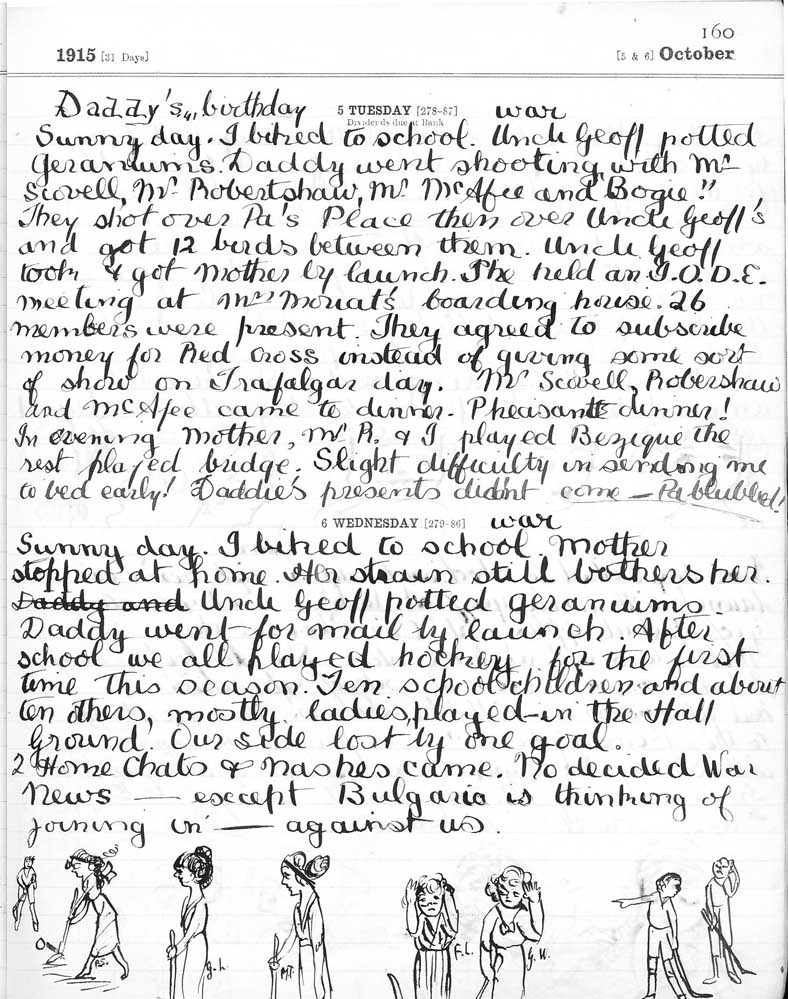 160
1915 [31 Days] [5 & 6] October
Daddy's 41, birthday 5 TUESDAY [278-87] war
Dividends due at Bank
Sunny day. I biked to school. Uncle Geoff potted
geraniums. Daddy went shooting with Mr
Scovell, Mr Robertshaw, Mr McAfee and "Bogie".
They shot over Pa's Place then over Uncle Geoff's
and got 12 birds between them. Uncle Geoff
took & got Mother by launch. The held an I.O.D.E.
meeting at Mrs Mouat's boarding house. 26
members were present. They agreed to subscribe
money for Red Cross instead of giving some sort
of show on Trafalgar day. Mr Scovell, Robershaw
and McAfee came to dinner. Pheasant dinner!
In evening Mother, Mr R. & I played Bezique the
rest played bridge. Slight difficulty in sending me
to bed early! Daddie's presents didn't come — Pa blubbed!
6 WEDNESDAY [279-86] war
Sunny day. I biked to school. Mother
stopped at home. Her strain still bothers her.
Daddy and Uncle Geoff potted geraniums.
Daddy went for mail by launch. After
school we all played hockey for the first
time this season. Ten school children and about
ten others, mostly ladies, played in the Hall
Ground. Our side lost by one goal.
2 Home Chats & Nashes came. No decided War
News — except Bulgaria is thinking of
joining in — against us.
G.L. F.L. G.W.